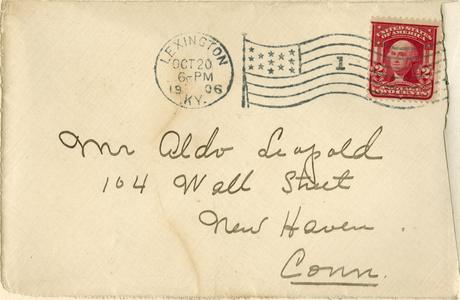 LEXINGTON
OCT 20
6-PM
1906
KY.
1
UNITED STATES
OF AMERICA
2 2
POSTAGE
TWO CENTS
Mr Aldo Leopold
104 Wall Street
New Haven
Conn.